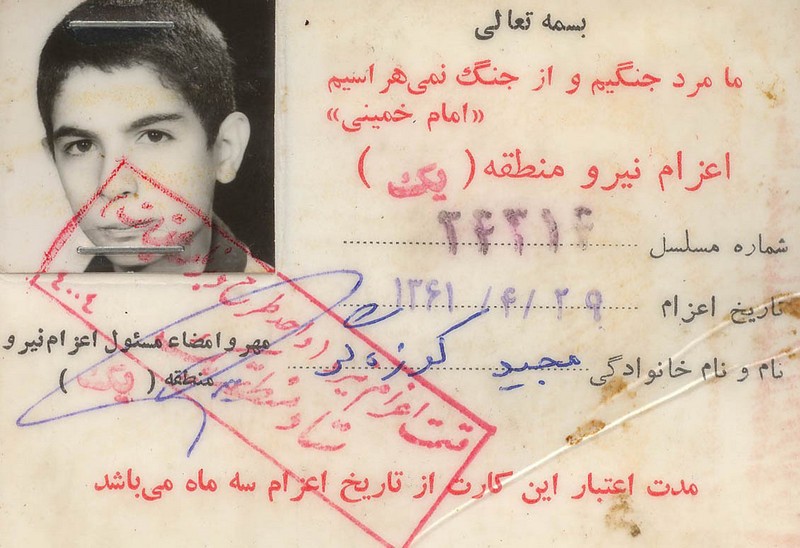 بسمه تعالی
ما مرد جنگیم و از جنگ نمی‌هراسیم
«امام خمینی»
اعزام نیرو منطقه ( یک )
شماره مسلسل
تاریخ اعزام ۱۳۶۱/۴/۲۹
نام و نام خانوادگی مجید
مهر و امضاء مسئول اعزام نیرو
منطقه ( یک )
مدت اعتبار این کارت از تاریخ اعزام سه ماه می‌باشد